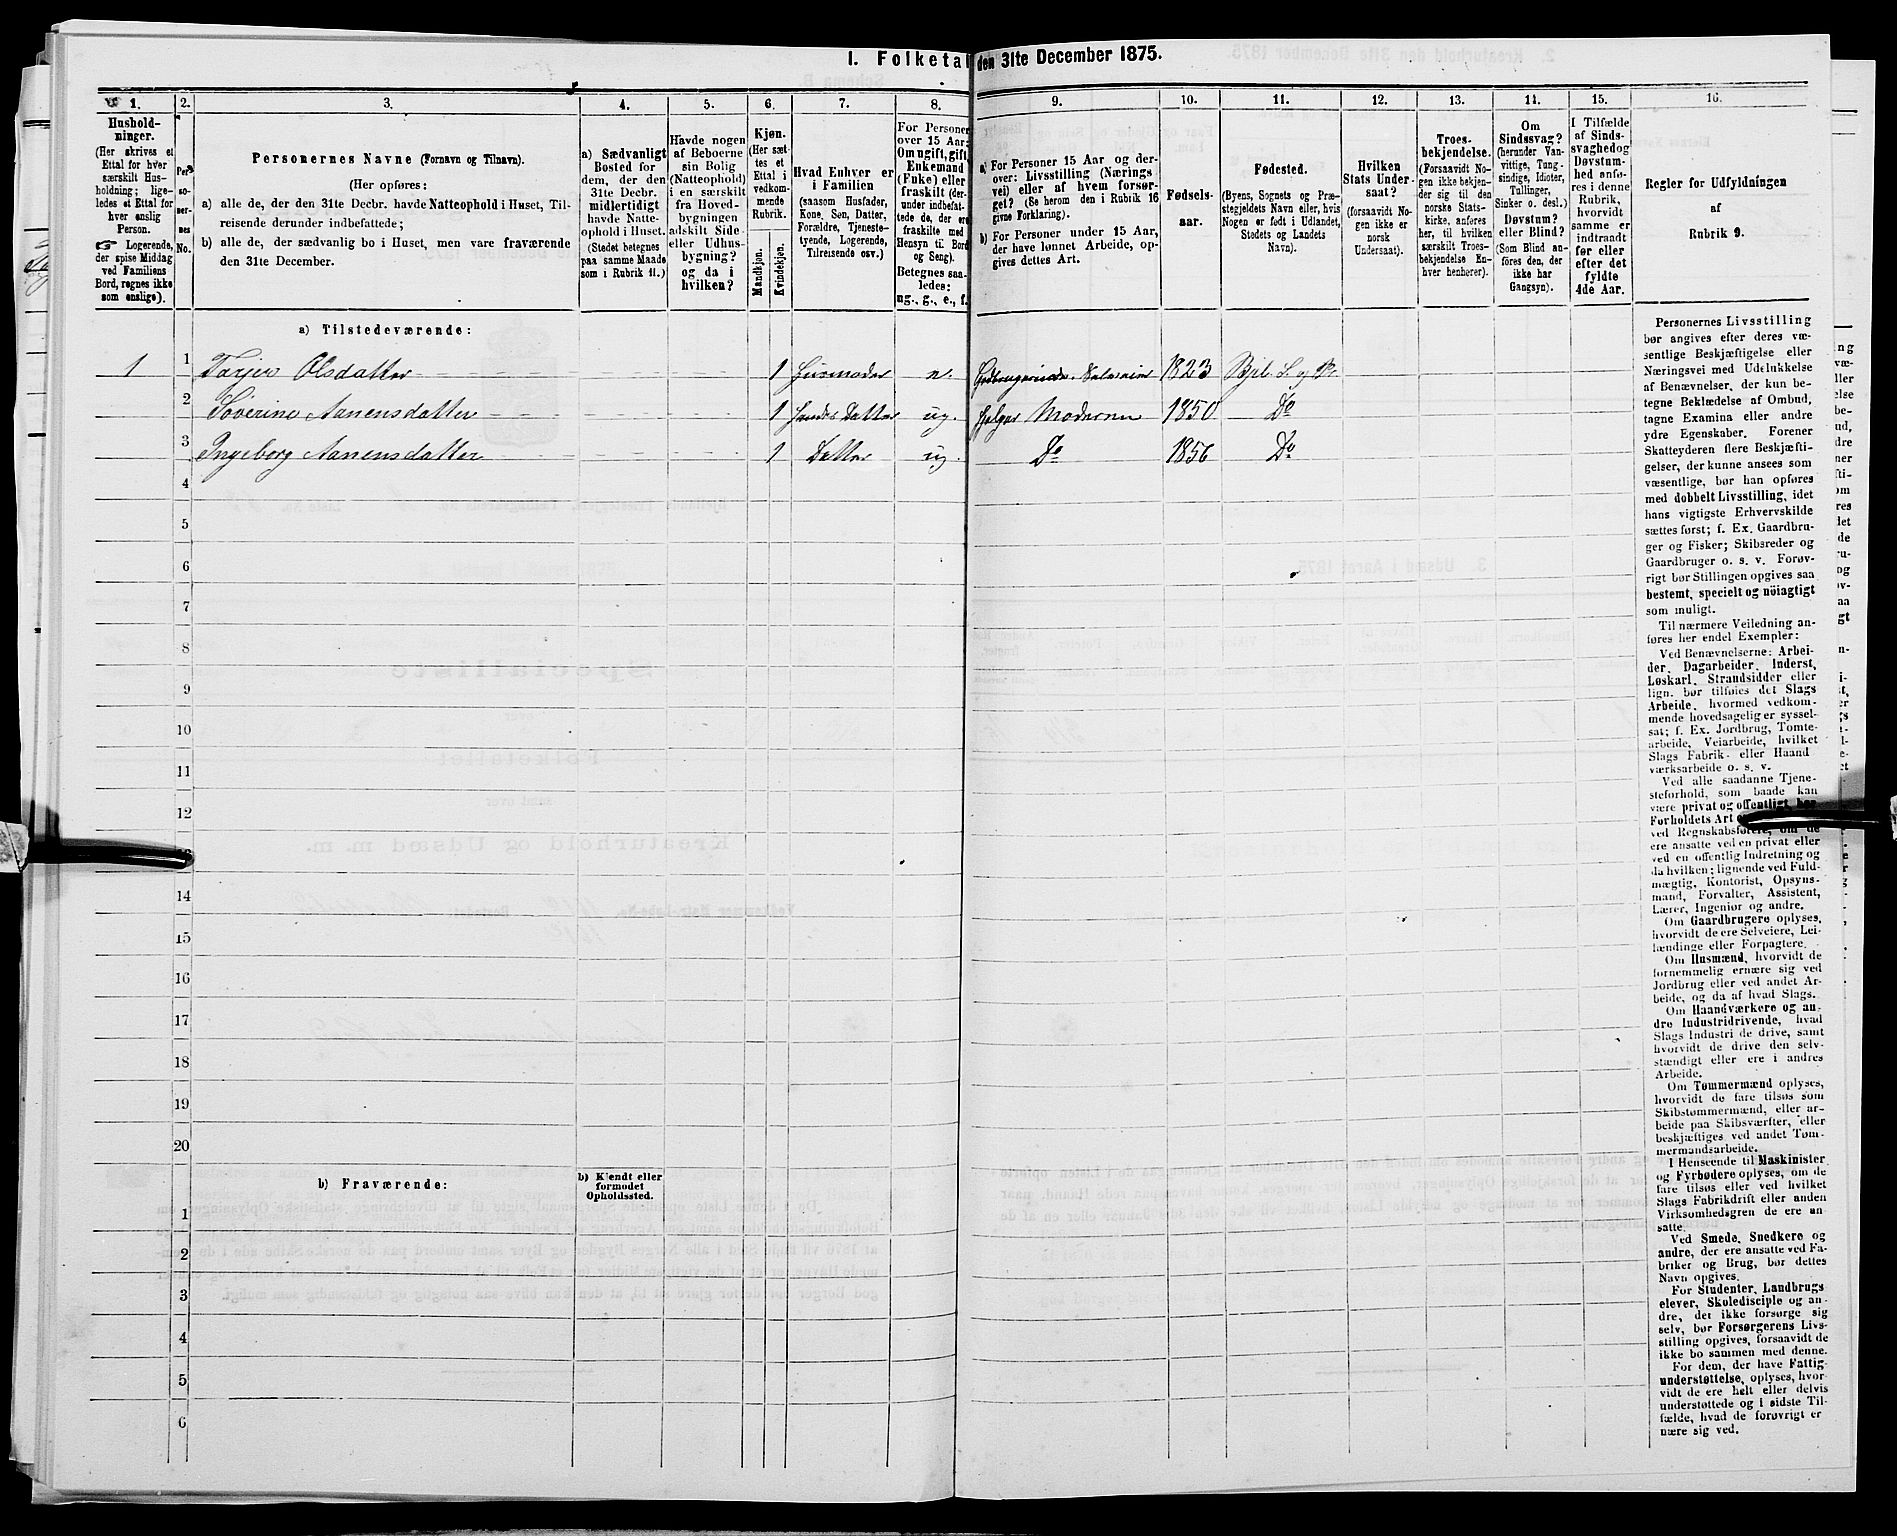 I. Folketal den 31te December 1875.
1. 2. 3. 4. 5. 6. 7. 8. 9. 10. 11. 12. 13. 14. 15. 16.
Hushold-
ninger.
(Her skrives et
Ettal for hver
særskilt Hus-
holdning; lige-
ledes et Ettal for
hver enslig
Person.
Logerende,
der spise Middag
ved Familiens
Bord, regnes ikke
som enslige).
Per-
so-
ner-
nes
No.
Personernes Navne (Fornavn og Tilnavn).
(Her opføres:
a) alle de, der den 31te Decbr. havde Natteophold i Huset, Til-
reisende derunder indbefattede;
b) alle de, der sædvanlig bo i Huset, men vare fraværende
den 31te December.
a) Sædvanligt
Bosted for
dem, der den
31te Decbr.
midlertidigt
havde Natte-
ophold i Huset.
(Stedet betegnes
paa samme Maade
som i Rubrik 11.)
Havde nogen
af Beboerne
sin Bolig
(Natteophold)
i en særskilt
fra Hoved-
bygningen
adskilt Side-
eller Udhus-
bygning?
og da i
hvilken?
Kjøn.
(Her sæt-
tes et
Ettal i
vedkom-
mende
Rubrik.
Mandkjøn.
Kvindekjøn.
Hvad Enhver er
i Familien
(saasom Husfader,
Kone, Søn, Datter,
Forældre, Tjeneste-
tyende, Logerende,
Tilreisende osv.)
For Personer
over 15 Aar:
Om ugift, gift,
Enkemand
(Enke) eller
fraskilt
under indbefat-
tede de, der ere
fraskilte med
Hensyn til Bord
og Seng).
Betegnes saa-
ledes:
ug., g., e., f.
a) For Personer 15 Aar og der-
over: Livsstilling (Nærings
vei) eller af hvem forsør-
get? (Se herom den i Rubrik 16
givne Forklaring).
b) For Personer under 15 Aar,
der have lønnet Arbeide, op-
gives dettes Art.
Fødsels-
aar.
Fødested.
(Byens, Sognets og Præ-
stegjeldets Navn eller, hvis
Nogen er født i Udlandet,
Stedets og Landets
Navn).
Hvilken
Stats Under-
saat?
(forsaavidt No-
gen ikke er
norsk
Undersaat).
Troes-
bekjendelse.
(Forsaavidt No-
gen ikke bekjen-
der sig til den
norske Stats-
kirke, anføres
her, til hvilken
særskilt Troes-
bekjendelse En-
hver henhører).
Om
Sindssvag?
(herunder Van-
vittige, Tung-
sindige, Idioter,
Tullinger,
Sinker o. desl.)
Døvstum?
eller Blind?
(Som Blind an-
føres den, der
ikke har
Gangsyn).
I Tilfælde
af Sinds-
svaghed og
Døvstum-
hed anfø-
res i denne
Rubrik,
hvorvidt
samme er
indtraadt
før eller
efter det
fyldte
4de Aar.
Regler for Udfyldningen
af
Rubrik 9.
a) Tilstedeværende:
1 1 Olsdatter 1 Husmoder 1823
2 Severine Aanensdatter 1 Datter ug. hjelper Moderen 1850 Do
3 Ingeborg Aanensdatter 1 Datter ug. Do 1856 Do
4
5
6
7
8
9
10
11
12
14
15
16
17
18
19
20
b) Fraværende:
b) Kjendt eller
formodet
Opholdssted.
1
2
3
4
5
6
Personernes Livsstilling
bør angives efter deres væ-
sentlige Beskjæftigelse eller
Næringsvei med Udelukkelse
af Benævnelser, der kun be-
tegne Beklædelse af Ombud,
tagne Examina eller andre
ydre Egenskaber. Forener
Skatteyderen flere Beskjæfti-
gelser, der kunne ansees som
væsentlige, bør han opføres
med dobbelt Livsstilling, idet
hans vigtigste Erhvervskilde
sættes først; f. Ex. Gaardbru-
ger og Fisker; Skibsreder og
Gaardbruger o. s. v. Forøv-
rigt bør Stillingen opgives saa
bestemt, specielt og nöiagtigt
som muligt.
Til nærmere Veiledning an-
føres her endel Exempler:
Ved Benævnelserne: Arbei-
der, Dagarbeider, Inderst,
Løskarl, Strandsidder eller
lign. bør tilføies det Slags
Arbeide, hvormed vedkom-
mende hovedsagelig er syssel-
sat; f. Ex. Jordbrug, Tomte-
arbeide, Veiarbeide, hvilket
Slags Fabrik- eller Haand
værksarbeide o. s. v.
Ved alle saadanne Tjene-
steforhold, som baade kan
være privat og offentligt, bør
Forholdets Art
ved Regnskabsførere, om de
ere ansatte ved en privat eller
ved en offentlig Indretning og
da hvilken; lignende ved Fuld-
mægtig, Kontorist, Opsyns-
mand, Forvalter, Assistent,
Lærer, Ingeniør og andre.
Om Gaardbrugere oplyses,
hvorvidt de ere Selveiere, Lei-
lændinge eller Forpagtere.
Om Husmænd, hvorvidt de
fornemmelig ernære sig ved
Jordbrug eller ved andet Ar-
beide, og da af hvad Slags.
Om Haandværkere og an-
dre Industridrivende, hvad
Slags Industri de drive, samt
hvorvidt de drive den selv-
stændigt eller ere i andres
Arbeide.
Om Tømmermænd oplyses,
hvorvidt de fare tilsøs som
Skibstømmermænd, eller ar-
beide paa Skibsværfter, eller
beskjæftiges ved andet Tøm-
mermandsarbeide.
I Henseende til Maskinister
og Fyrbødere oplyses, om de
fare tilsøs eller ved hvilket
Slags Fabrikdrift eller anden
Virksomhedsgren de ere an-
satte.
Ved Smede, Snedkere og
andre, der ere ansatte ved Fa-
briker og Brug, bør dettes
Navn opgives.
For Studenter, Landbrugs
elever, Skoledisciple og an-
dre, det ikke forsørge sig
selv, bør Forsørgerens Livs-
stilling opgives, forsaavidt de
ikke bo sammen med denne.
For dem, der have Fattig-
understøttelse, oplyses, hvor-
vidt de ere helt eller delvis
understøttede og i sidste Til-
fælde, hvad de forøvrigt er
nære sig ved.